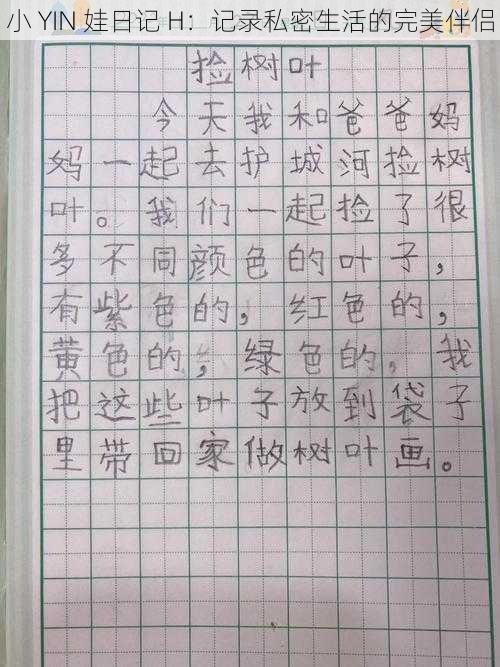 小 YIN 娃日记 H：记录私密生活的完美伴侣
捡树叶
今天我和爸爸妈
妈一起去护城河捡树
叶。我们一起捡了很
多不同颜色的叶子，
有紫色的，红色的，
黄色的，绿色的，我
把这些叶子放到袋子
里带回家做树叶画。